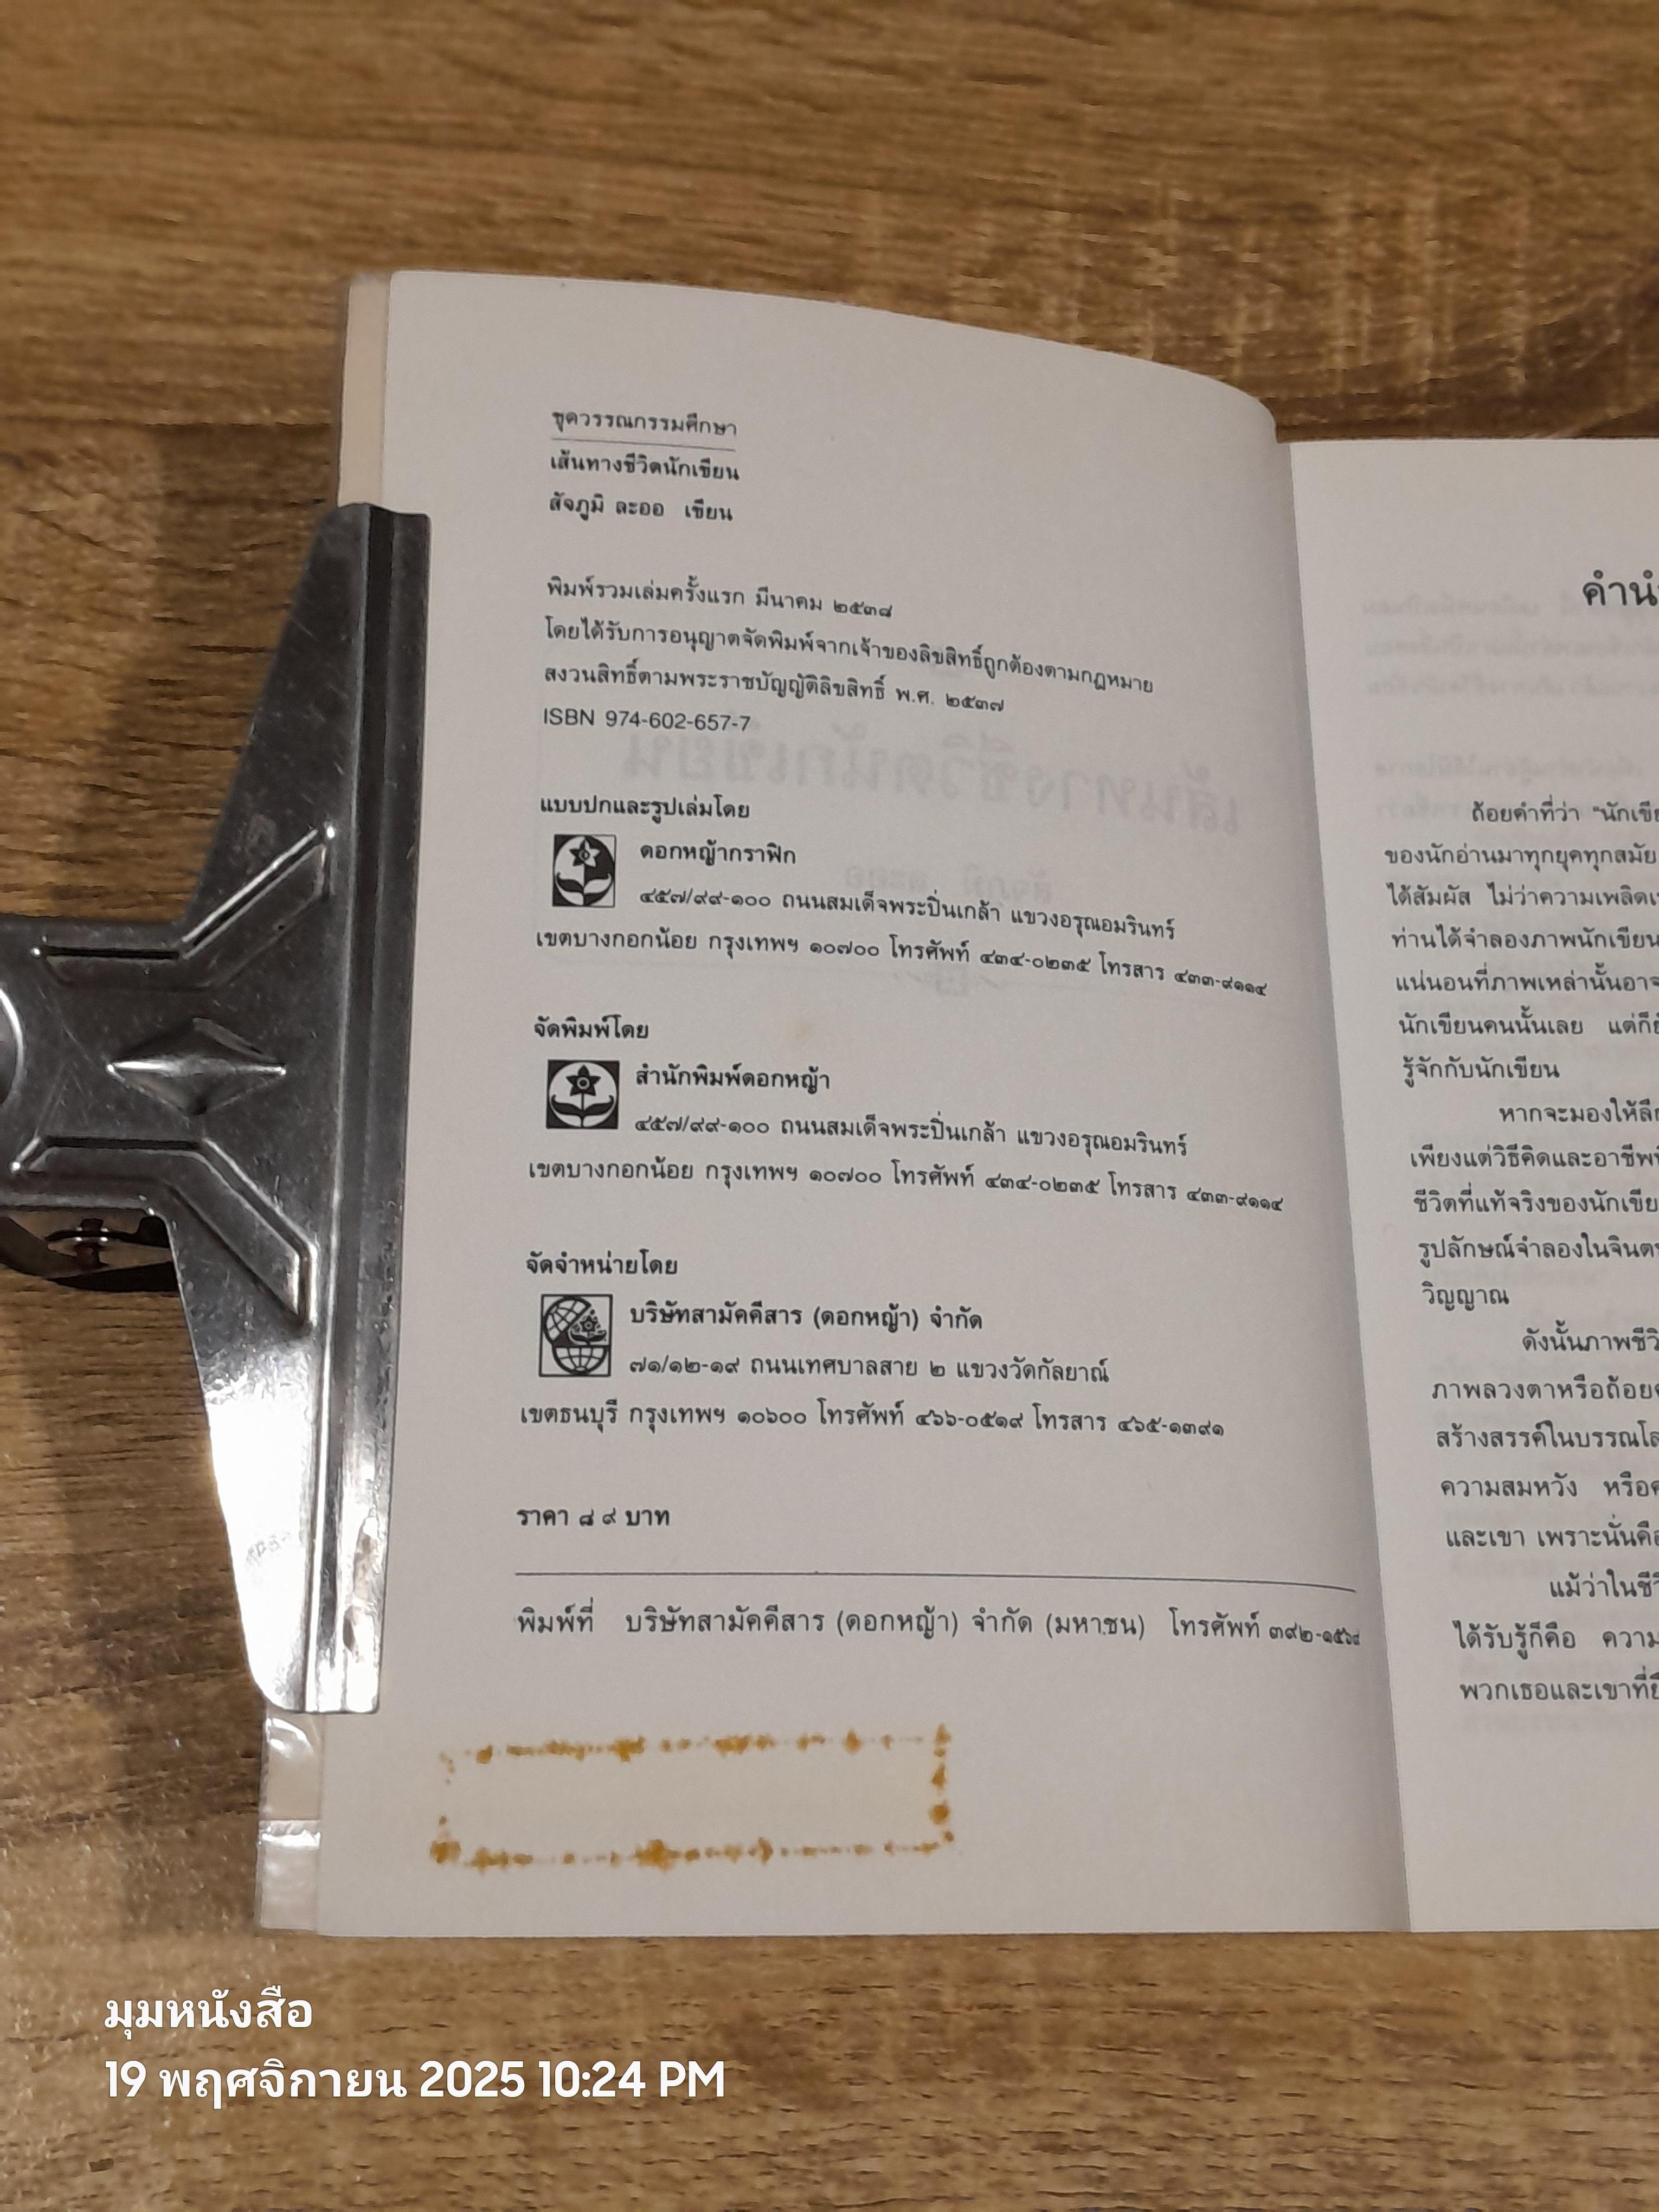 ชุดวรรณกรรมศึกษา
เส้นทางชีวิตนักเขียน
สัจภูมิ ละออ เขียน
พิมพ์รวมเล่มครั้งแรก มีนาคม ๒๕๓๘
โดยได้รับการอนุญาตจัดพิมพ์จากเจ้าของลิขสิทธิ์ถูกต้องตามกฎหมาย
สงวนสิทธิ์ตามพระราชบัญญัติลิขสิทธิ์ พ.ศ. ๒๕๓๗
ISBN 974-602-657-7
แบบปกและรูปเล่มโดย
ดอกหญ้ากราฟิก
๔๕๗/๙๙-๑๐๐ ถนนสมเด็จพระปิ่นเกล้า แขวงอรุณอมรินทร์
เขตบางกอกน้อย กรุงเทพฯ ๑๐๗๐๐ โทรศัพท์ ๔๓๔-๐๒๓๕ โทรสาร ๔๓๓-๙๑๑๔
จัดพิมพ์โดย
สำนักพิมพ์ดอกหญ้า
๔๕๗/๙๙-๑๐๐ ถนนสมเด็จพระปิ่นเกล้า แขวงอรุณอมรินทร์
เขตบางกอกน้อย กรุงเทพฯ ๑๐๗๐๐ โทรศัพท์ ๔๓๔-๐๒๓๕ โทรสาร ๔๓๓-๙๑๑๔
จัดจำหน่ายโดย
บริษัทสามัคคีสาร (ดอกหญ้า) จำกัด
๗๑/๑๒-๑๙ ถนนเทศบาลสาย ๒ แขวงวัดกัลยาณ์
เขตธนบุรี กรุงเทพฯ ๑๐๖๐๐ โทรศัพท์ ๔๖๖-๐๕๑๙ โทรสาร ๔๖๕-๑๓๙๑
ราคา ๘๙ บาท
พิมพ์ที่ บริษัทสามัคคีสาร (ดอกหญ้า) จำกัด (มหาชน) โทรศัพท์
คำนำ
ถ้อยคำที่ว่า "นักเขีย
ของนักอ่านมาทุกยุคทุกสมัย
ได้สัมผัส ไม่ว่าความเพลิดเ
ท่านได้จำลองภาพนักเขียน
แน่นอนที่ภาพเหล่านั้นอาจ
นักเขียนคนนั้นเลย แต่ก็ยั
รู้จักกับนักเขียน
หากจะมองให้ลึก
เพียงแต่วิธีคิดและอาชีพ
ชีวิตที่แท้จริงของนักเขีย
รูปลักษณ์จำลองในจินต
วิญญาณ
ดังนั้นภาพชีวิ
ภาพลวงตาหรือถ้อย
สร้างสรรค์ในบรรณโล
ความสมหวัง หรือ
และเขา เพราะนั่นคือ
แม้ว่าในชีวิ
ได้รับรู้ก็คือ ความ
พวกเธอและเขาที่
มุมหนังสือ
19 พฤศจิกายน 2025 10:24 PM